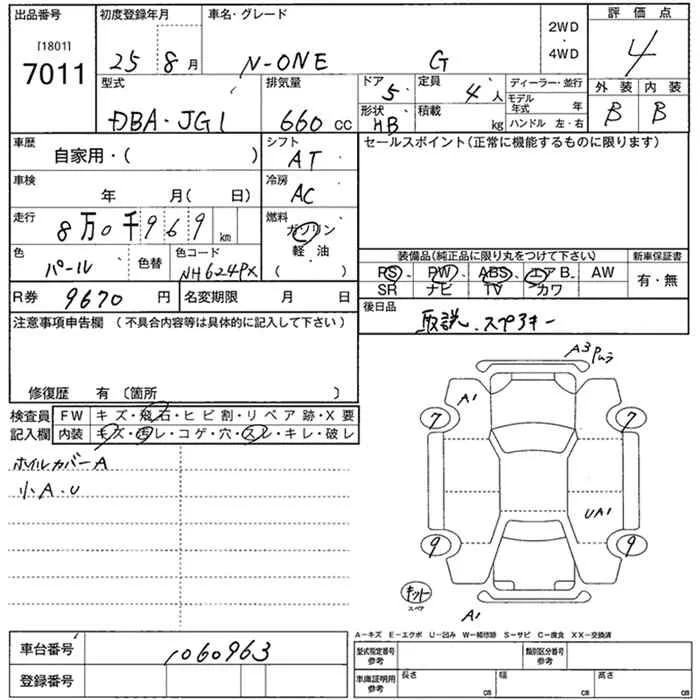 出品番号 初度登録年月 車名・グレード 評価点
[1801]
7011
25 8 月 N-ONE G 2WD ・ 4WD 4
型式 排気量 ドア 5 定員 4 人 ディーラー・並行 外装 内装
DBA・JG1 660 CC 形状 HB 積載 kg モデル年式 年 B B
ハンドル 左・右
車歴 自家用・( ) シフト AT セールスポイント(正常に機能するものに限ります)
車検 年 月( 日) 冷房 AC
走行 8万0千969 km 燃料 ガソリン
軽油
( )
色 パール 色替 色コード NH624PX 装備品(純正品に限り丸をつけて下さい) 新車保証書
PS PW ABS エアB. AW 有・無
SR ナビ TV カワ
R券 9670 円 名変期限 月 日 後日品
取説、スペアキー
注意事項申告欄 (不具合内容等は具体的に記入して下さい)
修復歴 有〔箇所 〕
検査員 FW キズ・飛石・ヒビ割・リペア跡・X要
記入欄 内装 キズ・汚レ・コゲ・穴・スレ・キレ・破レ
ホイルカバーA
小A・U
A1
7 7
UA1
9 9
キット
スペア
A1
A－キズ E－エクボ U－凹み W－補修跡 S－サビ C－腐食 XX－交換済
車台番号 1060963 型式指定番号 参考 類別区分番号 参考
登録番号 車庫証明用 参考 長さ cm 幅 cm 高さ cm